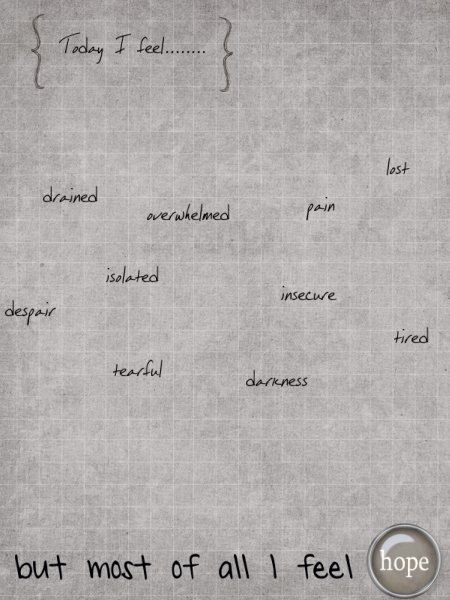 Today I feel........
lost
drained
overwhelmed
pain
isolated
insecure
despair
tired
tearful
darkness
but most of all I feel hope